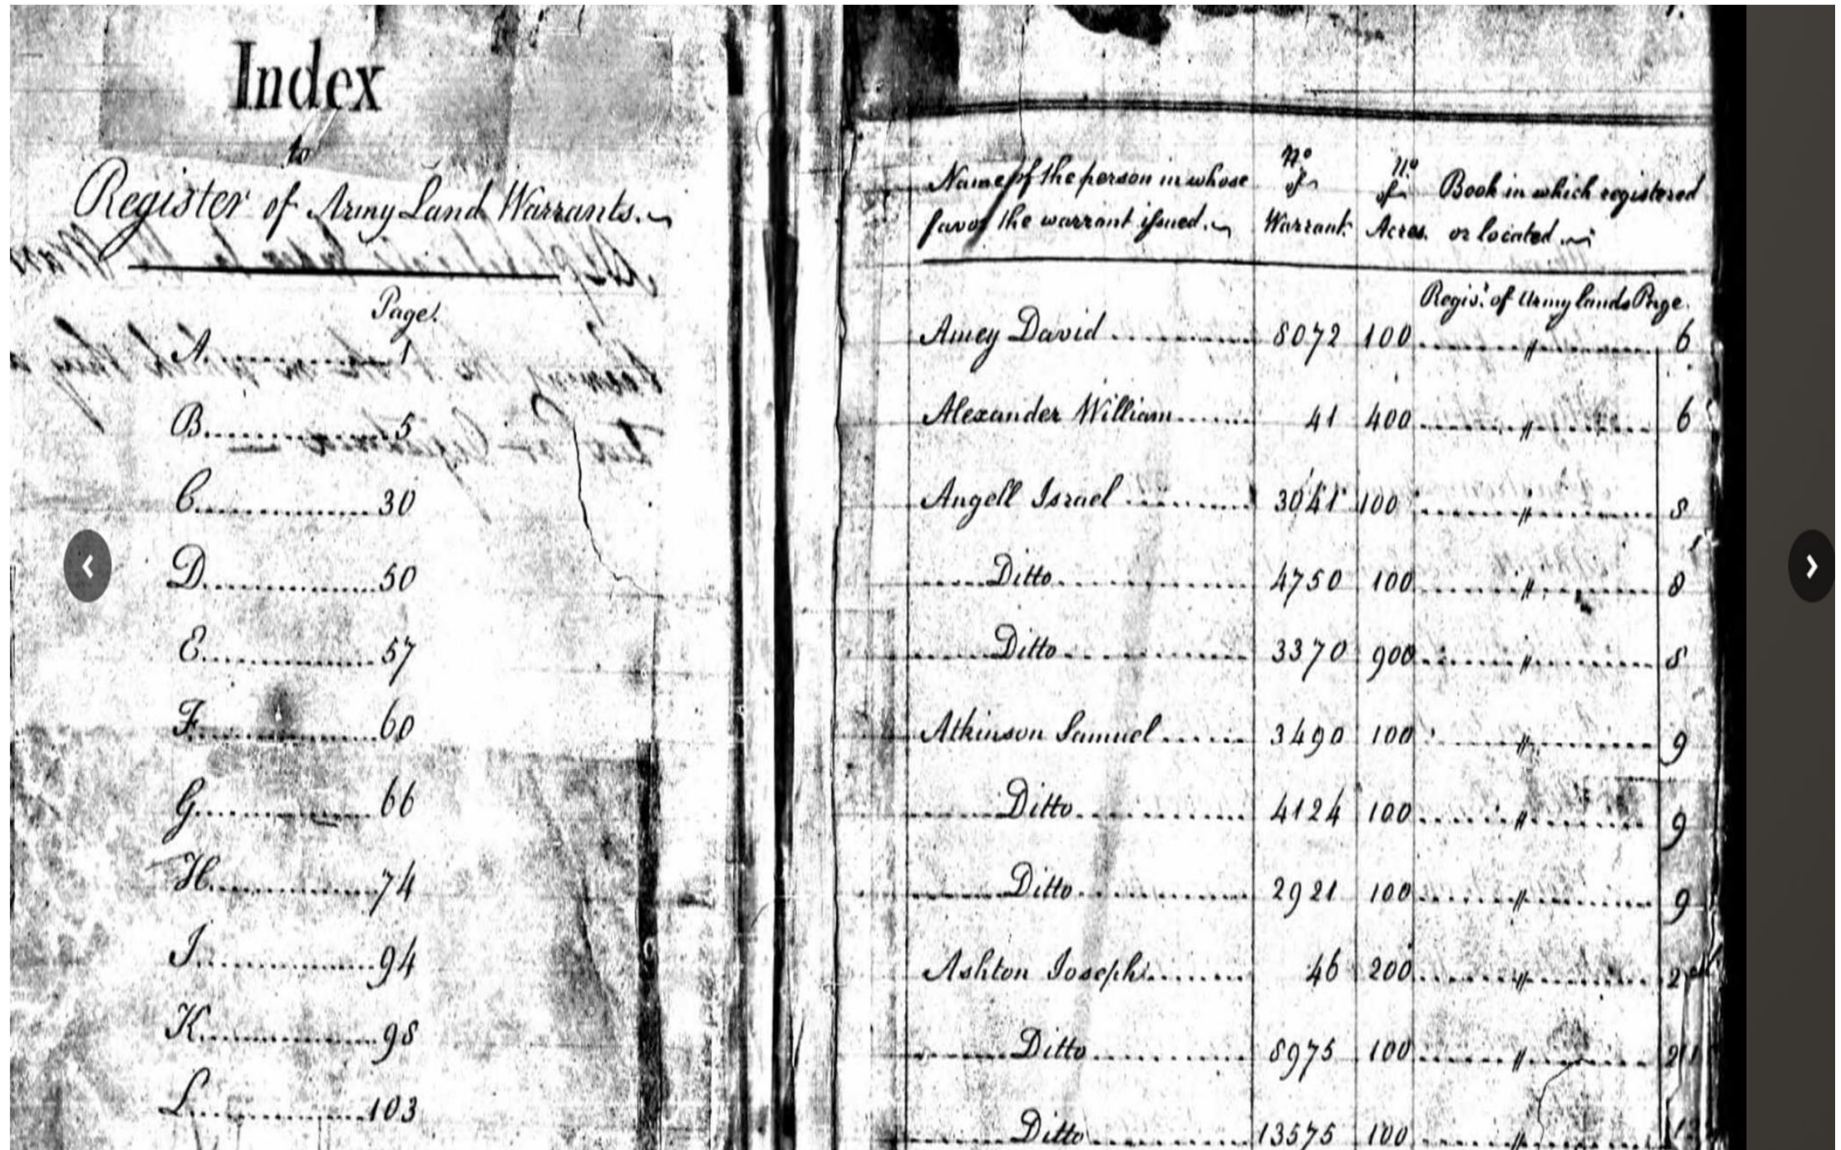 Index
to
Register of Army Land Warrants.
Page.
A..................1
B..................5
C..................30
D..................50
E..................57
F..................60
G..................66
H..................74
I..................94
K..................98
L..................103
Name of the person in whose
favor the warrant issued.
No of Warrant
No of Acres.
Book in which registered
or located.
Regisr. of Army lands Page.
Amey David 8072 100 〃 6
Alexander William 41 400 〃 6
Angell Israel 3041 100 〃 8
Ditto 4750 100 〃 8
Ditto 3370 900 〃 8
Atkinson Samuel 3490 100 〃 9
Ditto 4124 100 〃 9
Ditto 2921 100 〃 9
Ashton Joseph 46 200 〃
Ditto 8975 100 〃
Ditto 13575 100 〃